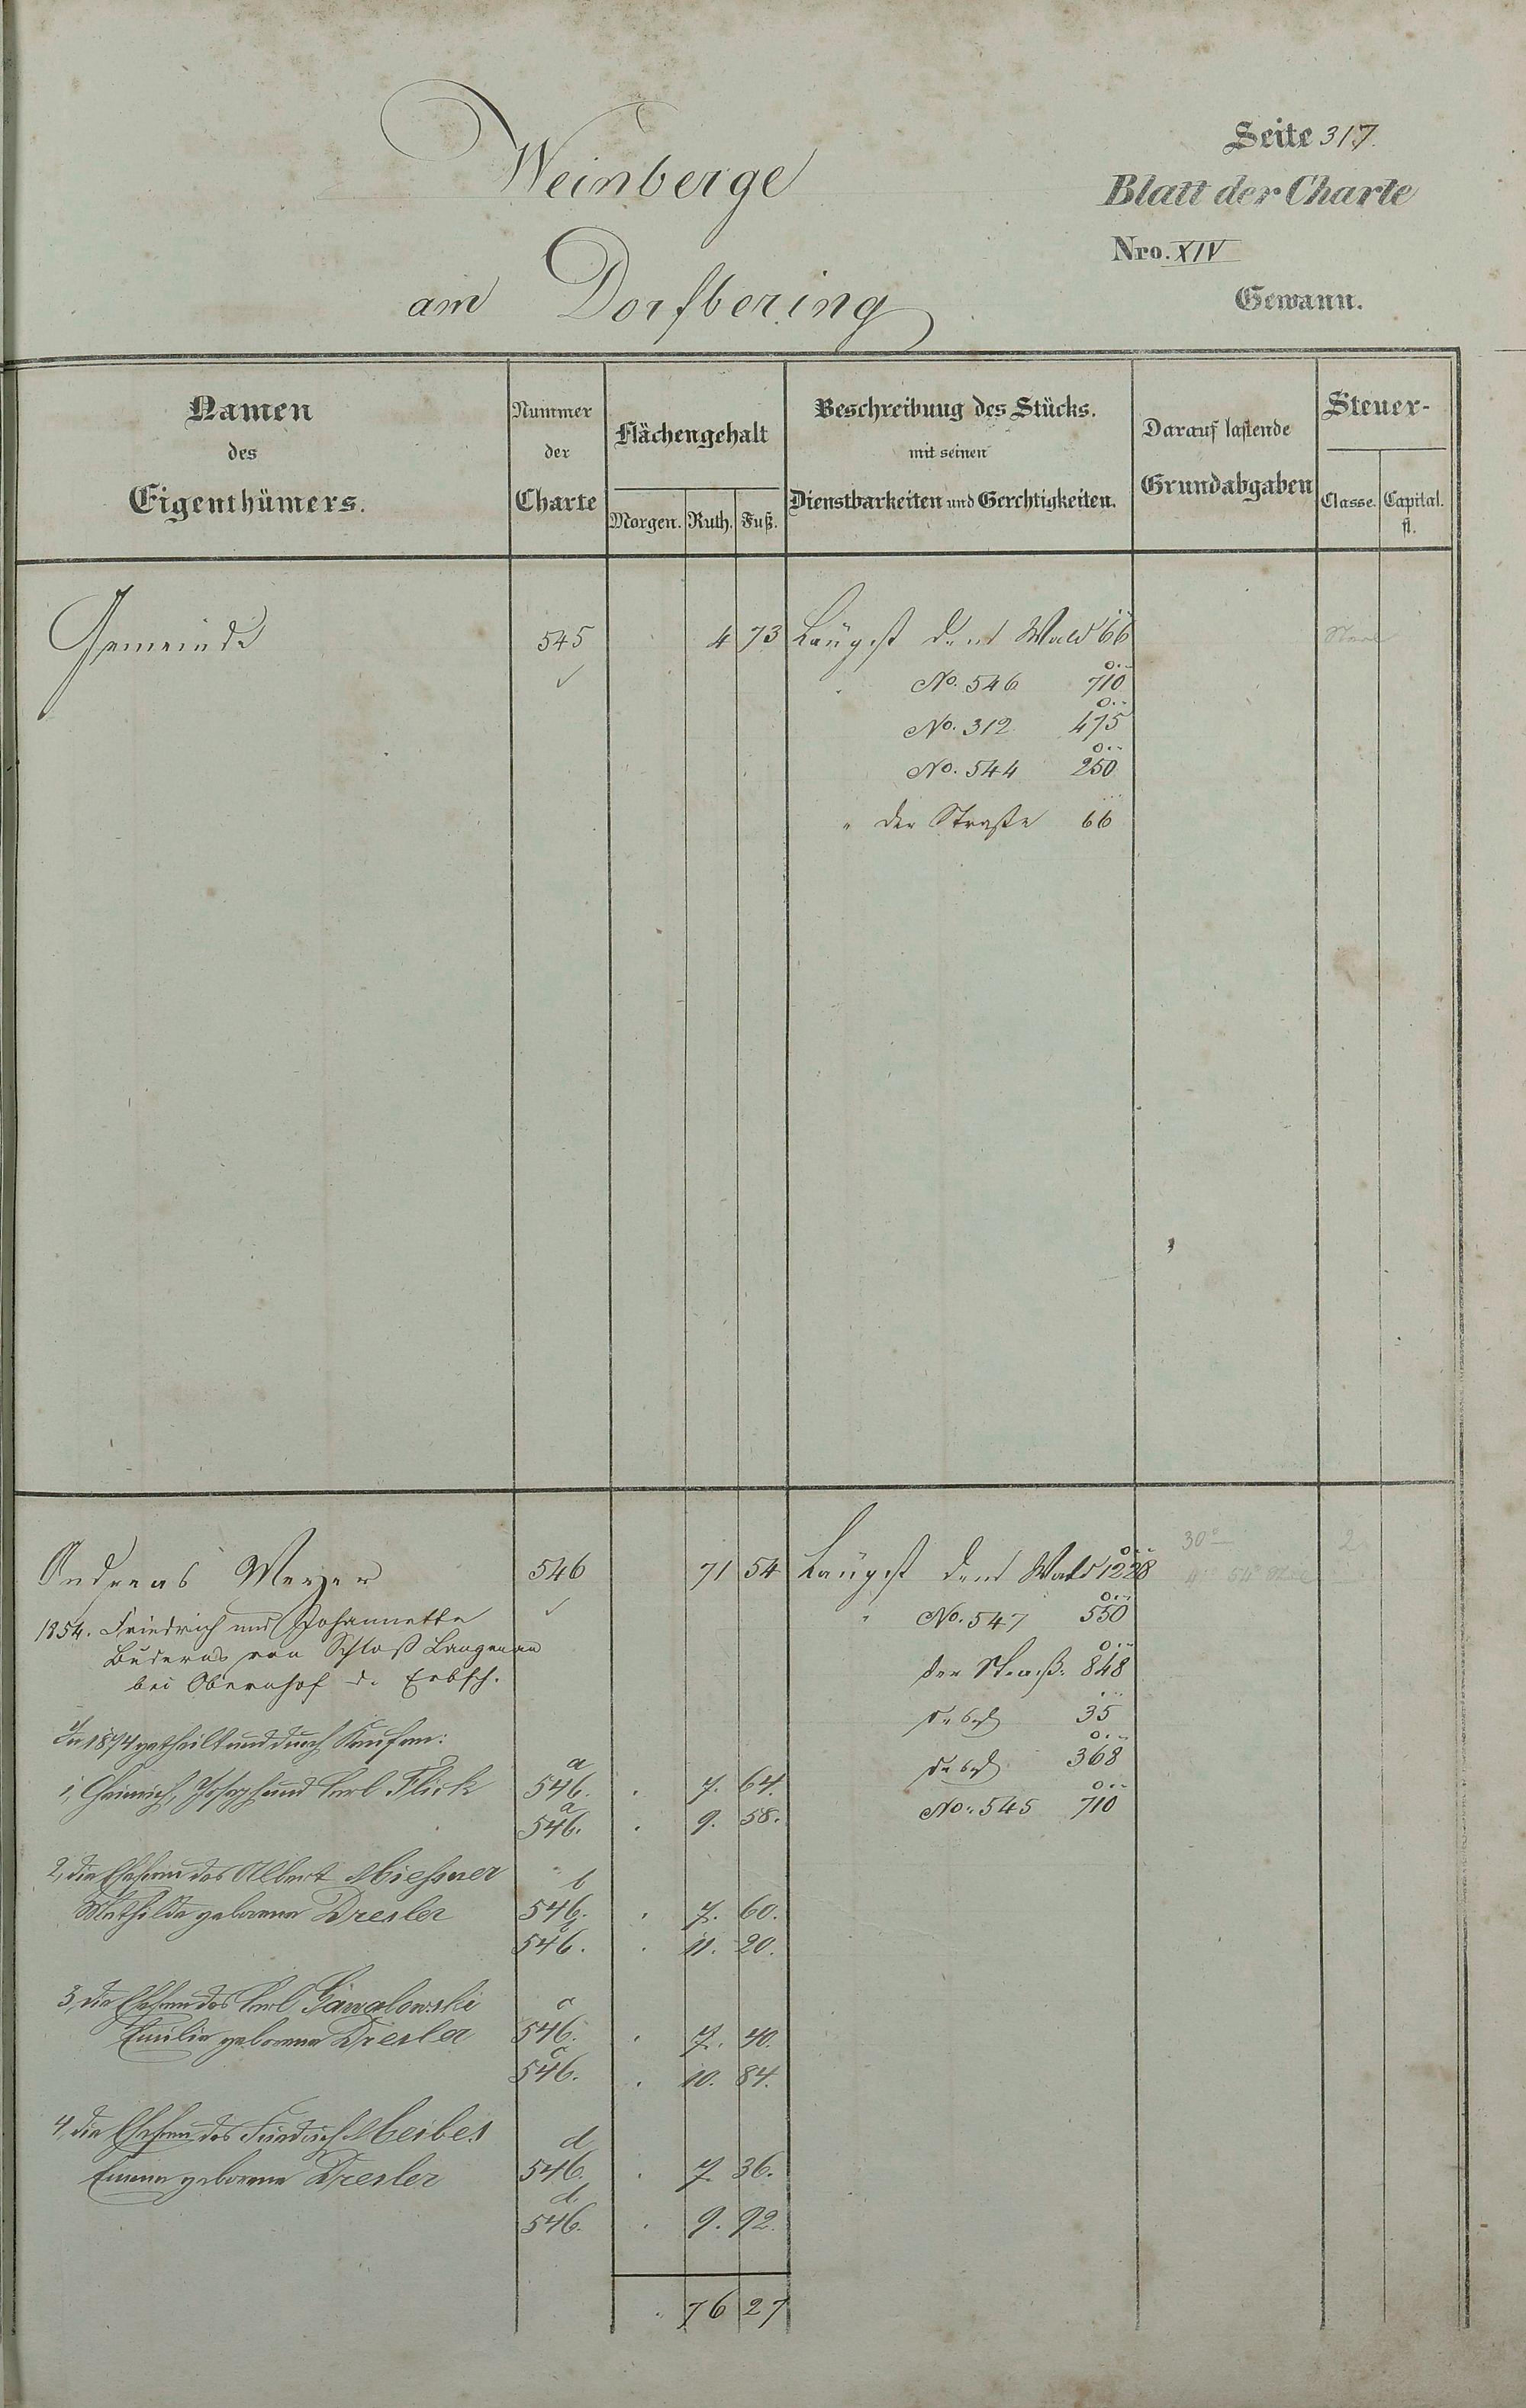 Weinberge
am Dorfbering
Seite 317.
Blatt der Charte
Nro. XIV
Gewann.
Namen des Eigenthümers.
Nummer der Charte
Flächengehalt
Morgen. Ruth. Fuß.
Beschreibung des Stücks.
mit seinen
Dienstbarkeiten und Gerechtigkeiten.
Darauf lastende
Grundabgaben
Steuer-
Classe. Capital.
fl.
Gemeinde 545 4 73 Längst dem Wald 66
No. 546 710
No. 312 475
No. 544 250
" der Straße 66
Andreas Meyer 546 71 54 Längst dem Wald 1228
1854. Friedrich und Johannette " No. 547 550
Buderus von Schloß Langenau der Straß. 848
bei Obernhof d. Erbsch.
ds. 35
In 1874 getheilt und durch Kaufen:
ds. 368
1, Heinrich, Joseph und Karl Flick 546.a . 7. 64.
546.a . 9. 58. No. 545 710
2, die Ehefrau des Albert Miessner
Mathilde geborene Dresler 546.b . 7. 60.
546.b . 11. 20.
3, die Ehefrau des Karl Gawalowski
Emilie geborene Dresler 546.c . 7. 40.
546.c . 10. 84.
4, die Ehefrau des Friedrich Meibes
Emma geborene Dresler 546.d . 7. 36.
546.d . 9. 92.
76 27
30
2